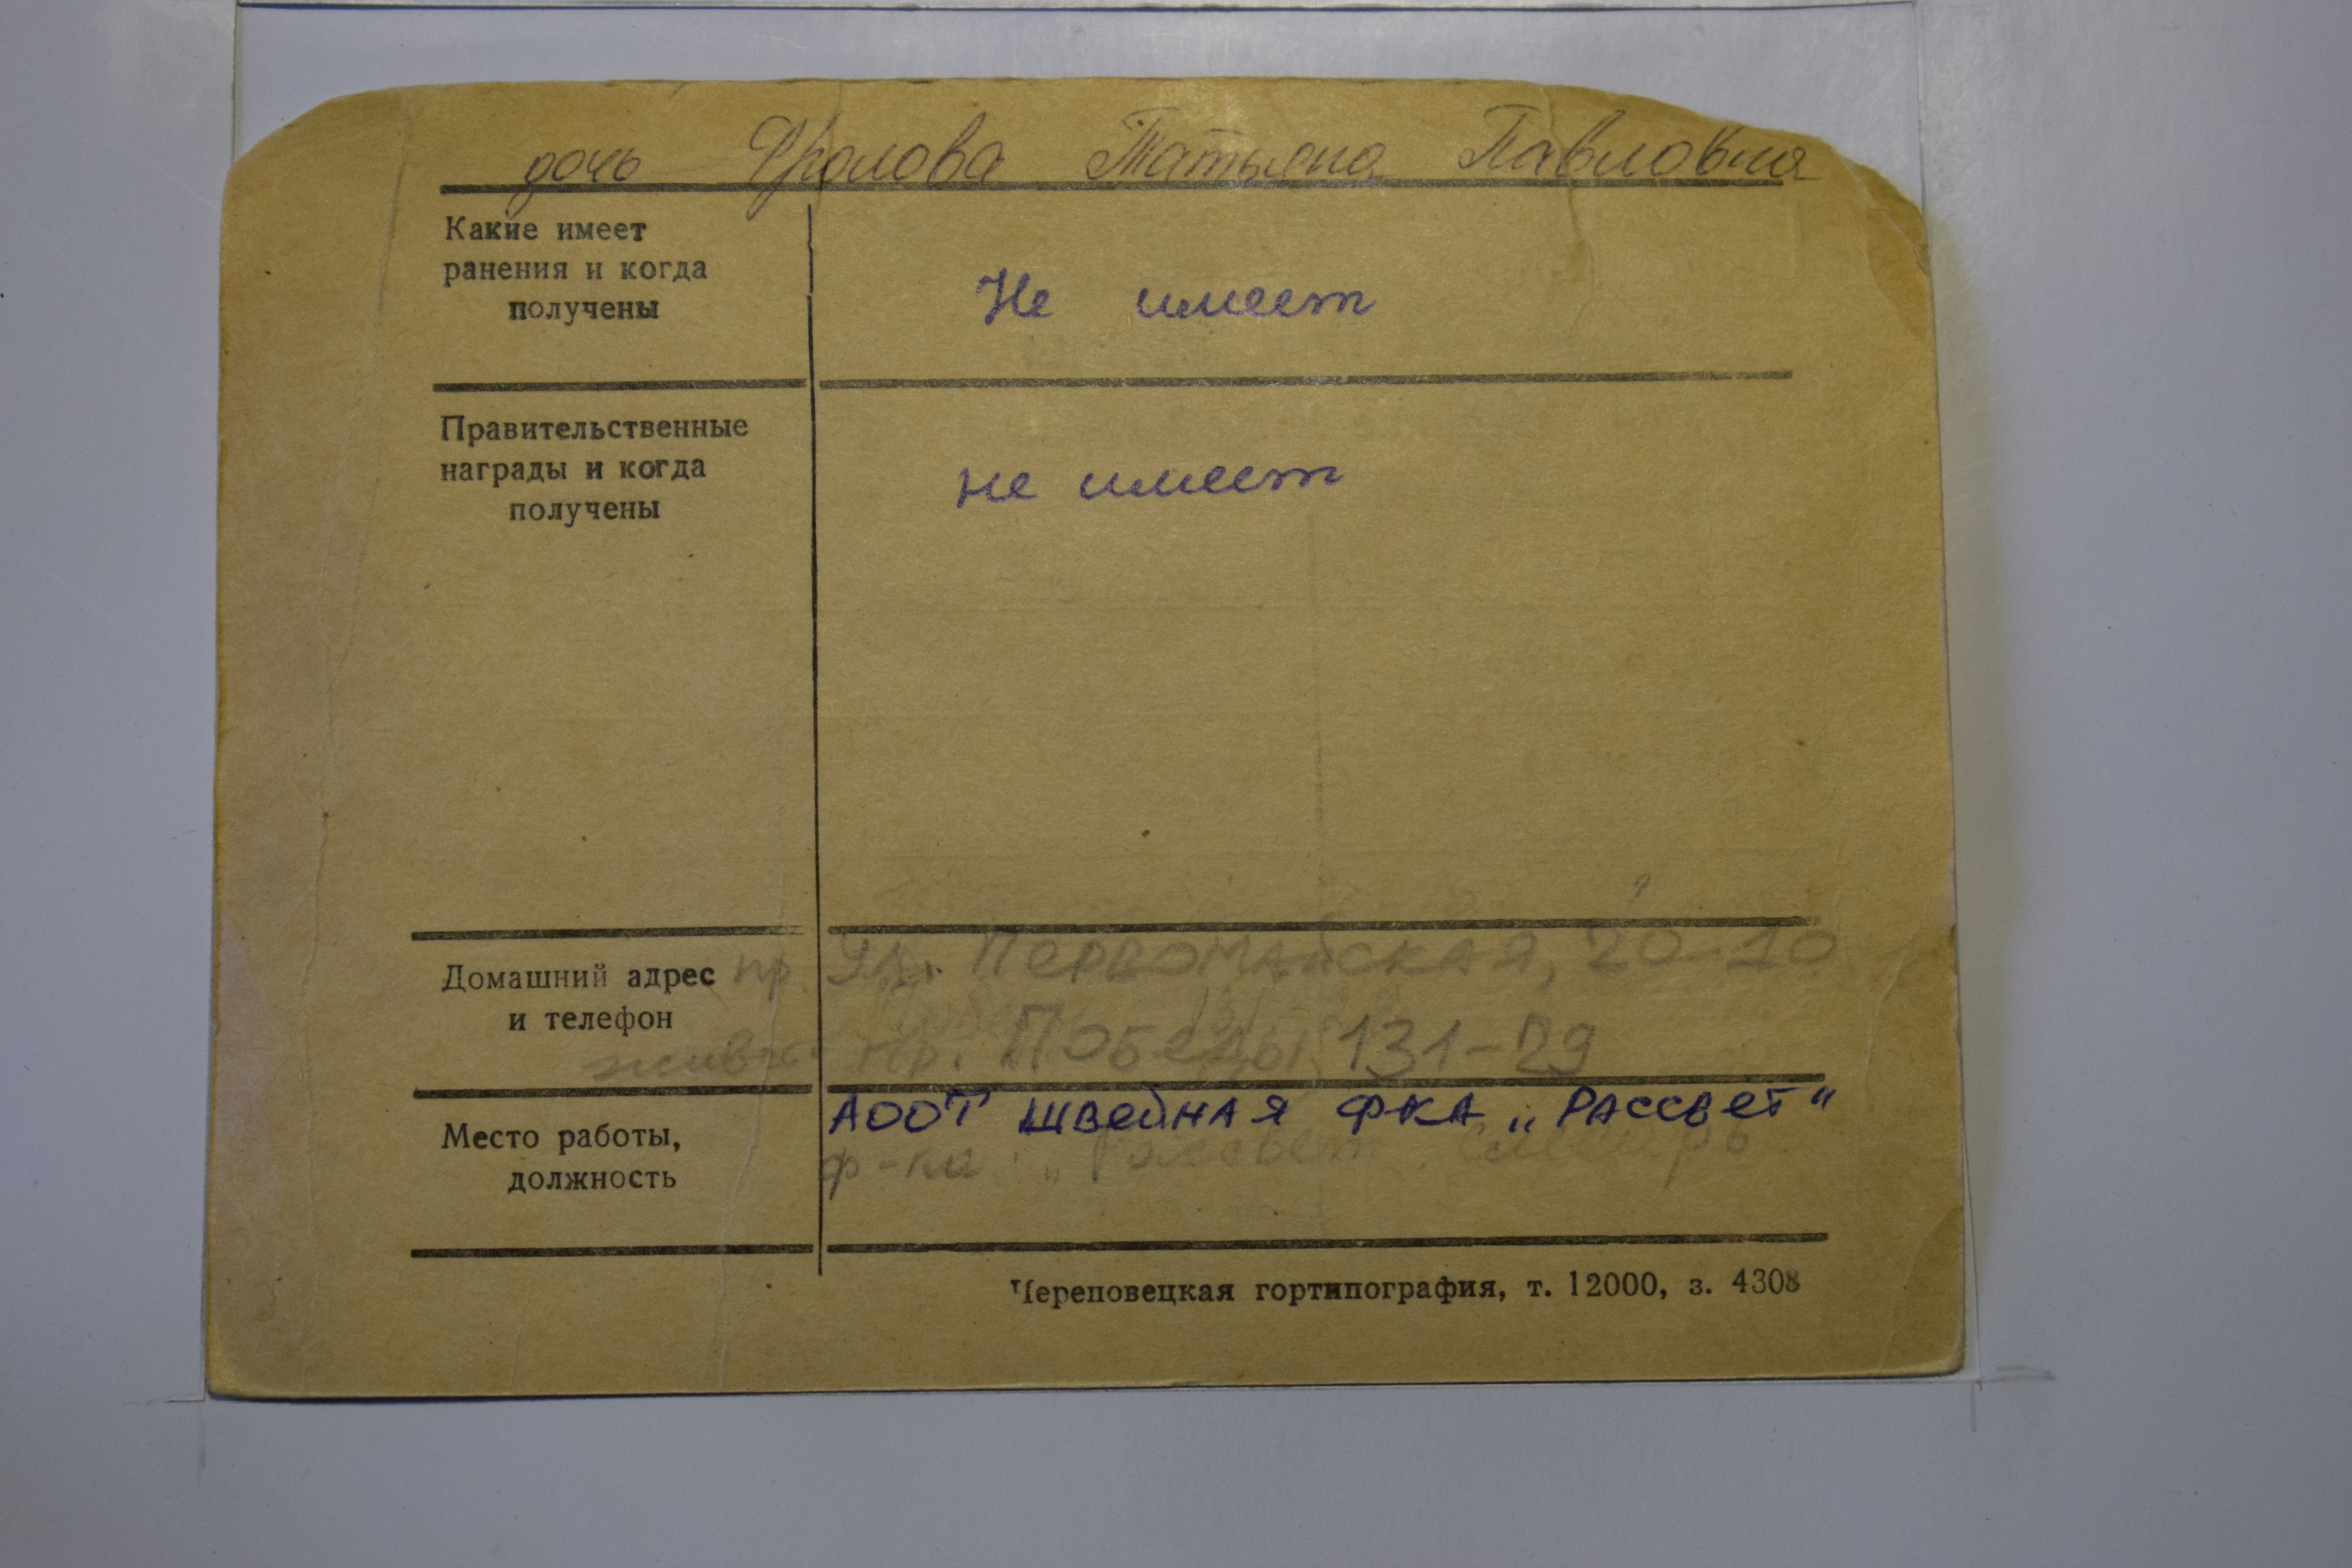 дочь Фролова Татьяна Павловна
Какие имеет
ранения и когда
получены
Не имеет
Правительственные
награды и когда
получены
не имеет
Домашний адрес
и телефон
пр. Ул. Первомайская, 20-10
пр. Победы 131-29
Место работы,
должность
АООТ ШВЕЙНАЯ Ф-КА „РАССВЕТ“
ф-ка „Рассвет" слесарь
Череповецкая гортипография, т. 12000, з. 4308